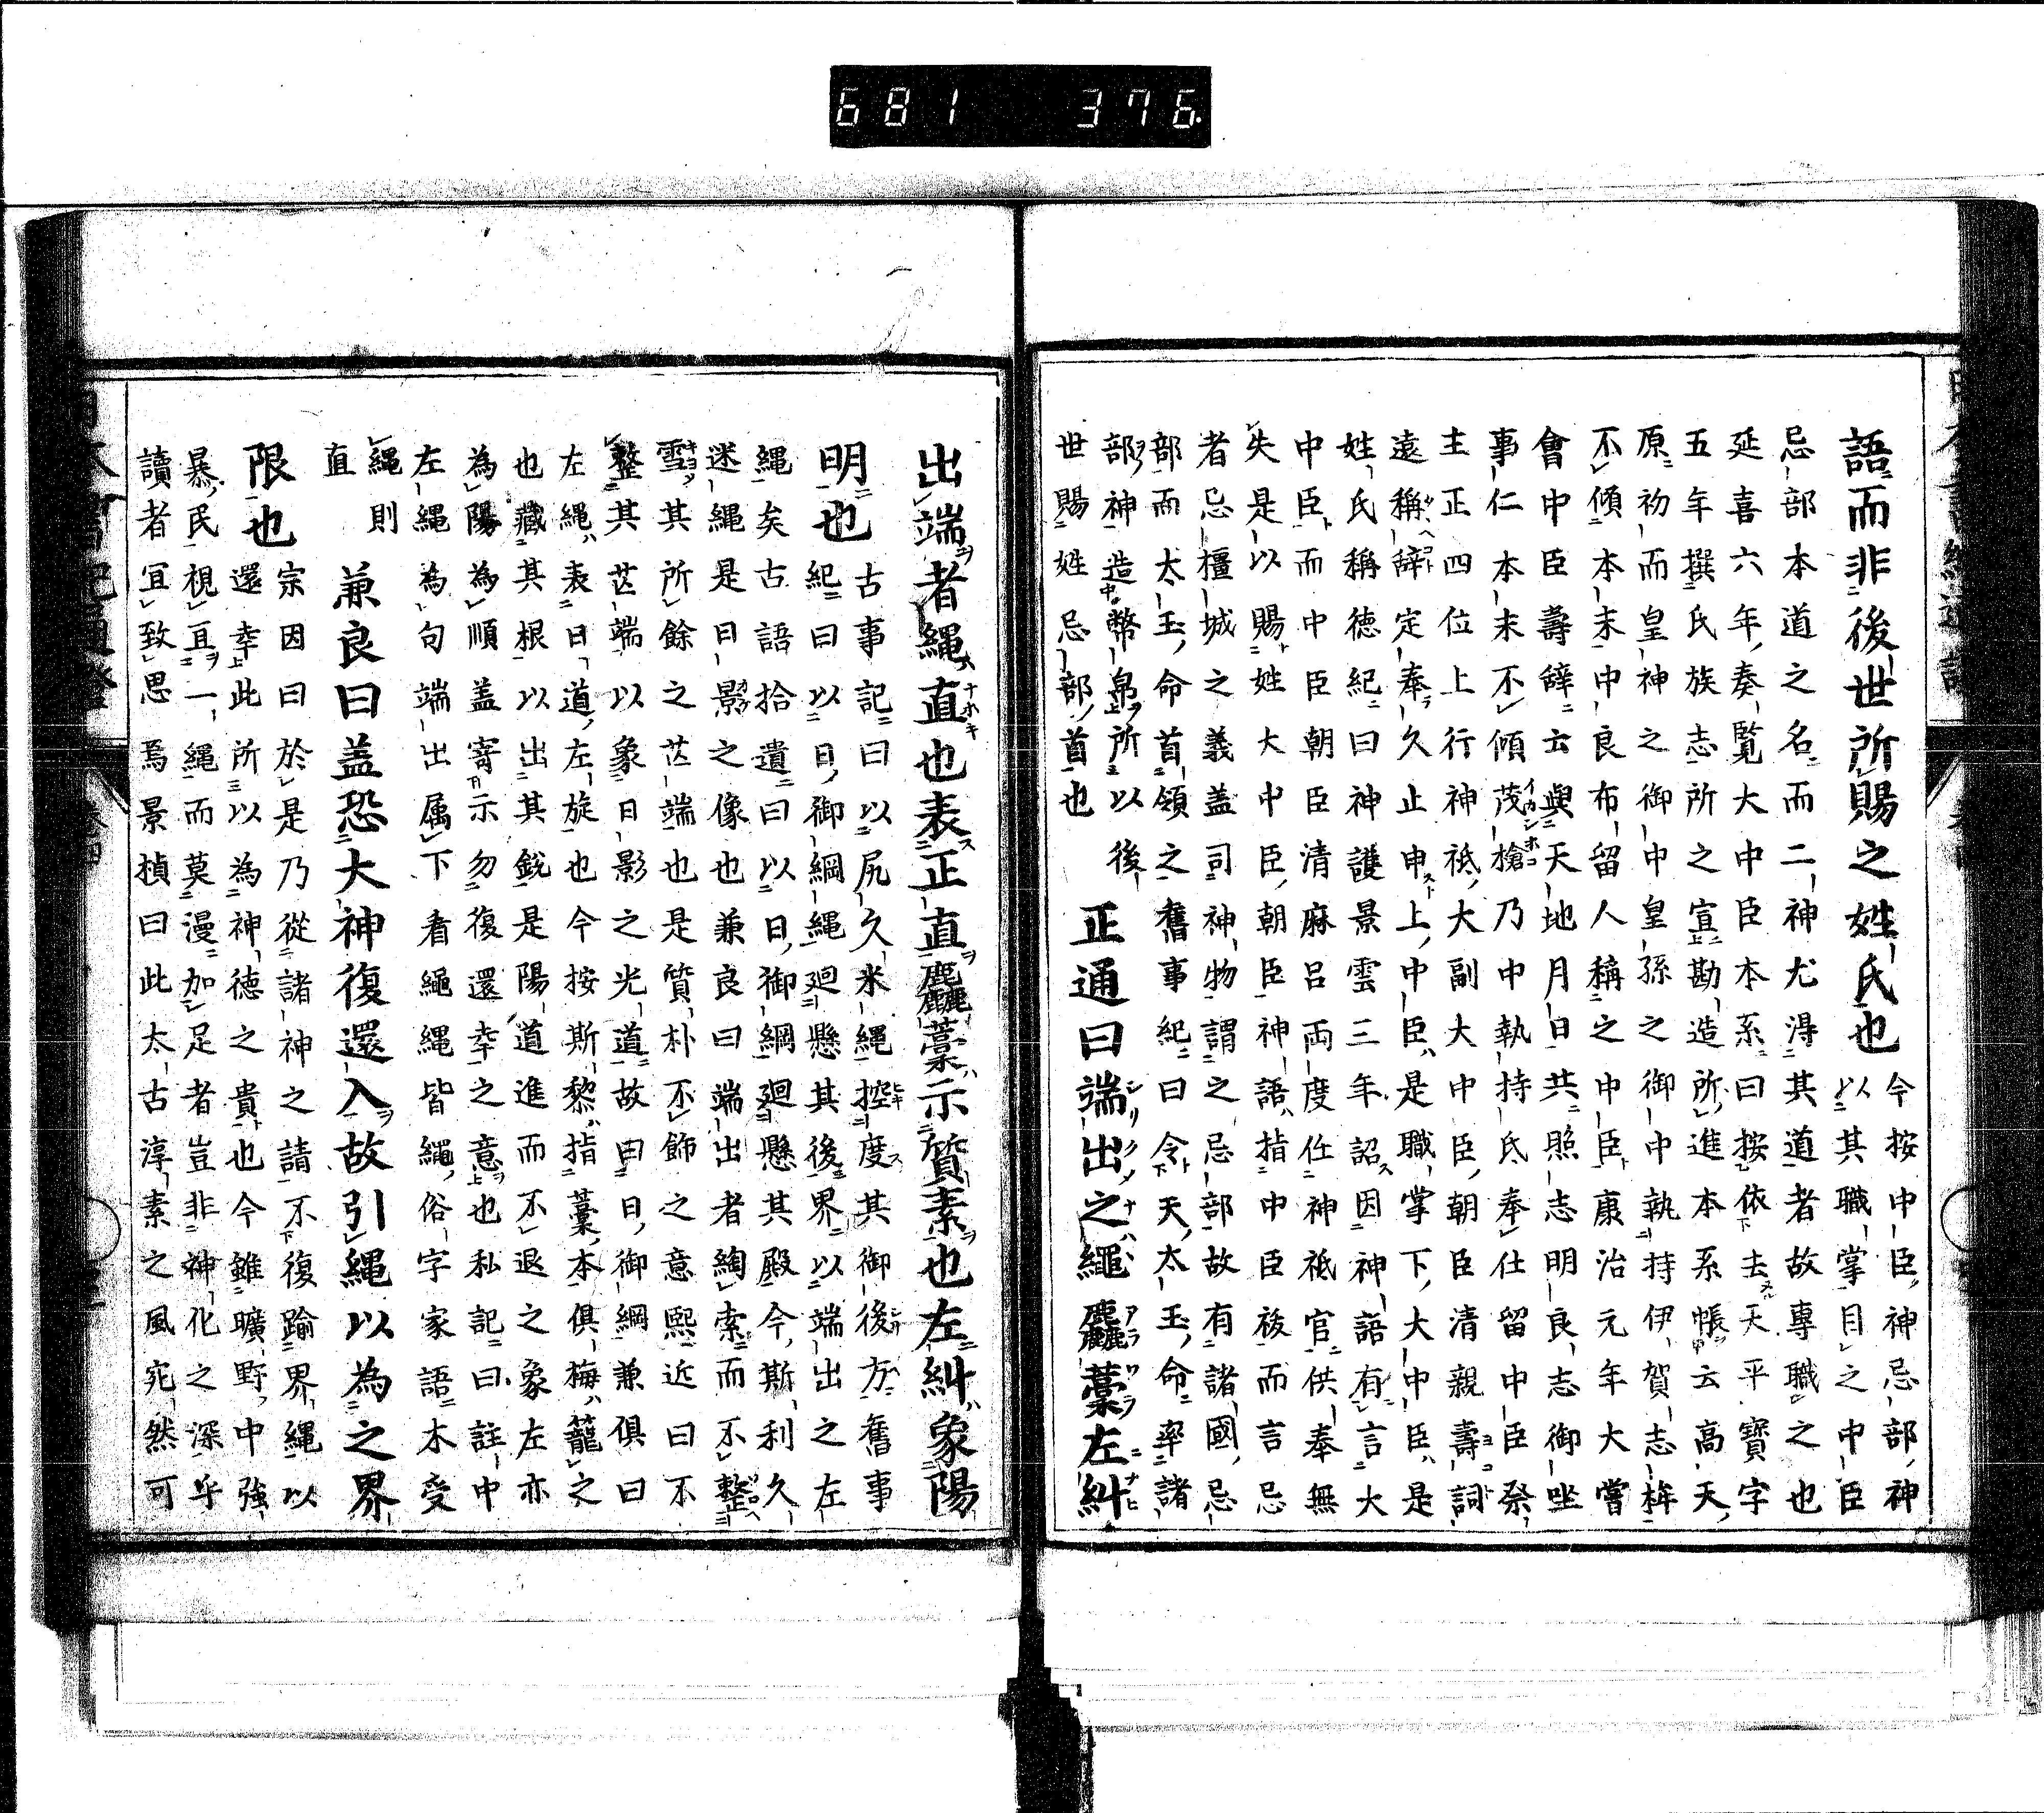 681 376
語而非後世所賜之姓氏也
今按中臣神忌部神
以其職掌目之中臣
忌部本道之名而二神尤得其道者故專職之也
延喜六年奏覧大中臣本系曰按依去天平寶字
五年撰氏族志所之宣勘造所進本系帳云高天
原初而皇神之御中皇孫之御中執持伊賀志桙
不傾本末中良布留人稱之中臣康治元年大嘗
會中臣壽辭云與天地月日共照志明良志御坐
事仁本末不傾茂槍乃中執持氏奉仕留中臣祭
主正四位上行神祇大副大中臣朝臣清親壽詞
遠稱辭定奉久止申上中臣是職掌下大中臣是
姓氏稱德紀曰神護景雲三年詔因神語有言大
中臣而中臣朝臣清麻呂両度任神祇官供奉無
失是以賜姓大中臣朝臣神語指中臣祓而言忌
者忌橿城之義蓋司神物謂之忌部故有諸國忌
部而太玉命首領之舊事紀曰令天太玉命率諸
部神造幣帛所以後
世賜姓忌部首也
正通曰端出之繩麤藁左糾
出端者繩直也表正直麤藁示質素也左糾象陽
明也
古事記曰以尻久米繩控度其御後方舊事
紀曰以日御綱繩廻懸其後界以端出之左
繩矣古語拾遺曰以日御綱廻懸其殿今斯利久
迷繩是日影之像也兼良曰端出者綯索而不整
雪其所餘之芒端也是質朴不飾之意熙近曰不
整其芒端以象日影之光道故曰日御綱兼俱曰
左繩表日道左旋也今按斯黎指藁本俱梅籠之
也藏其根以出其鋭是陽道進而不退之象左亦
為陽為順蓋寄示勿復還幸之意也私記曰註中
左繩為句端出属下看繩繩皆繩俗字家語木受
繩則
直
兼良曰蓋恐大神復還入故引繩以為之界
限也
宗因曰於是乃從諸神之請不復踰界繩以
還幸此所以為神德之貴也今雖曠野中強
暴民視亘一繩而莫漫加足者豈非神化之深乎
讀者宜致思焉景楨曰此太古淳素之風宛然可